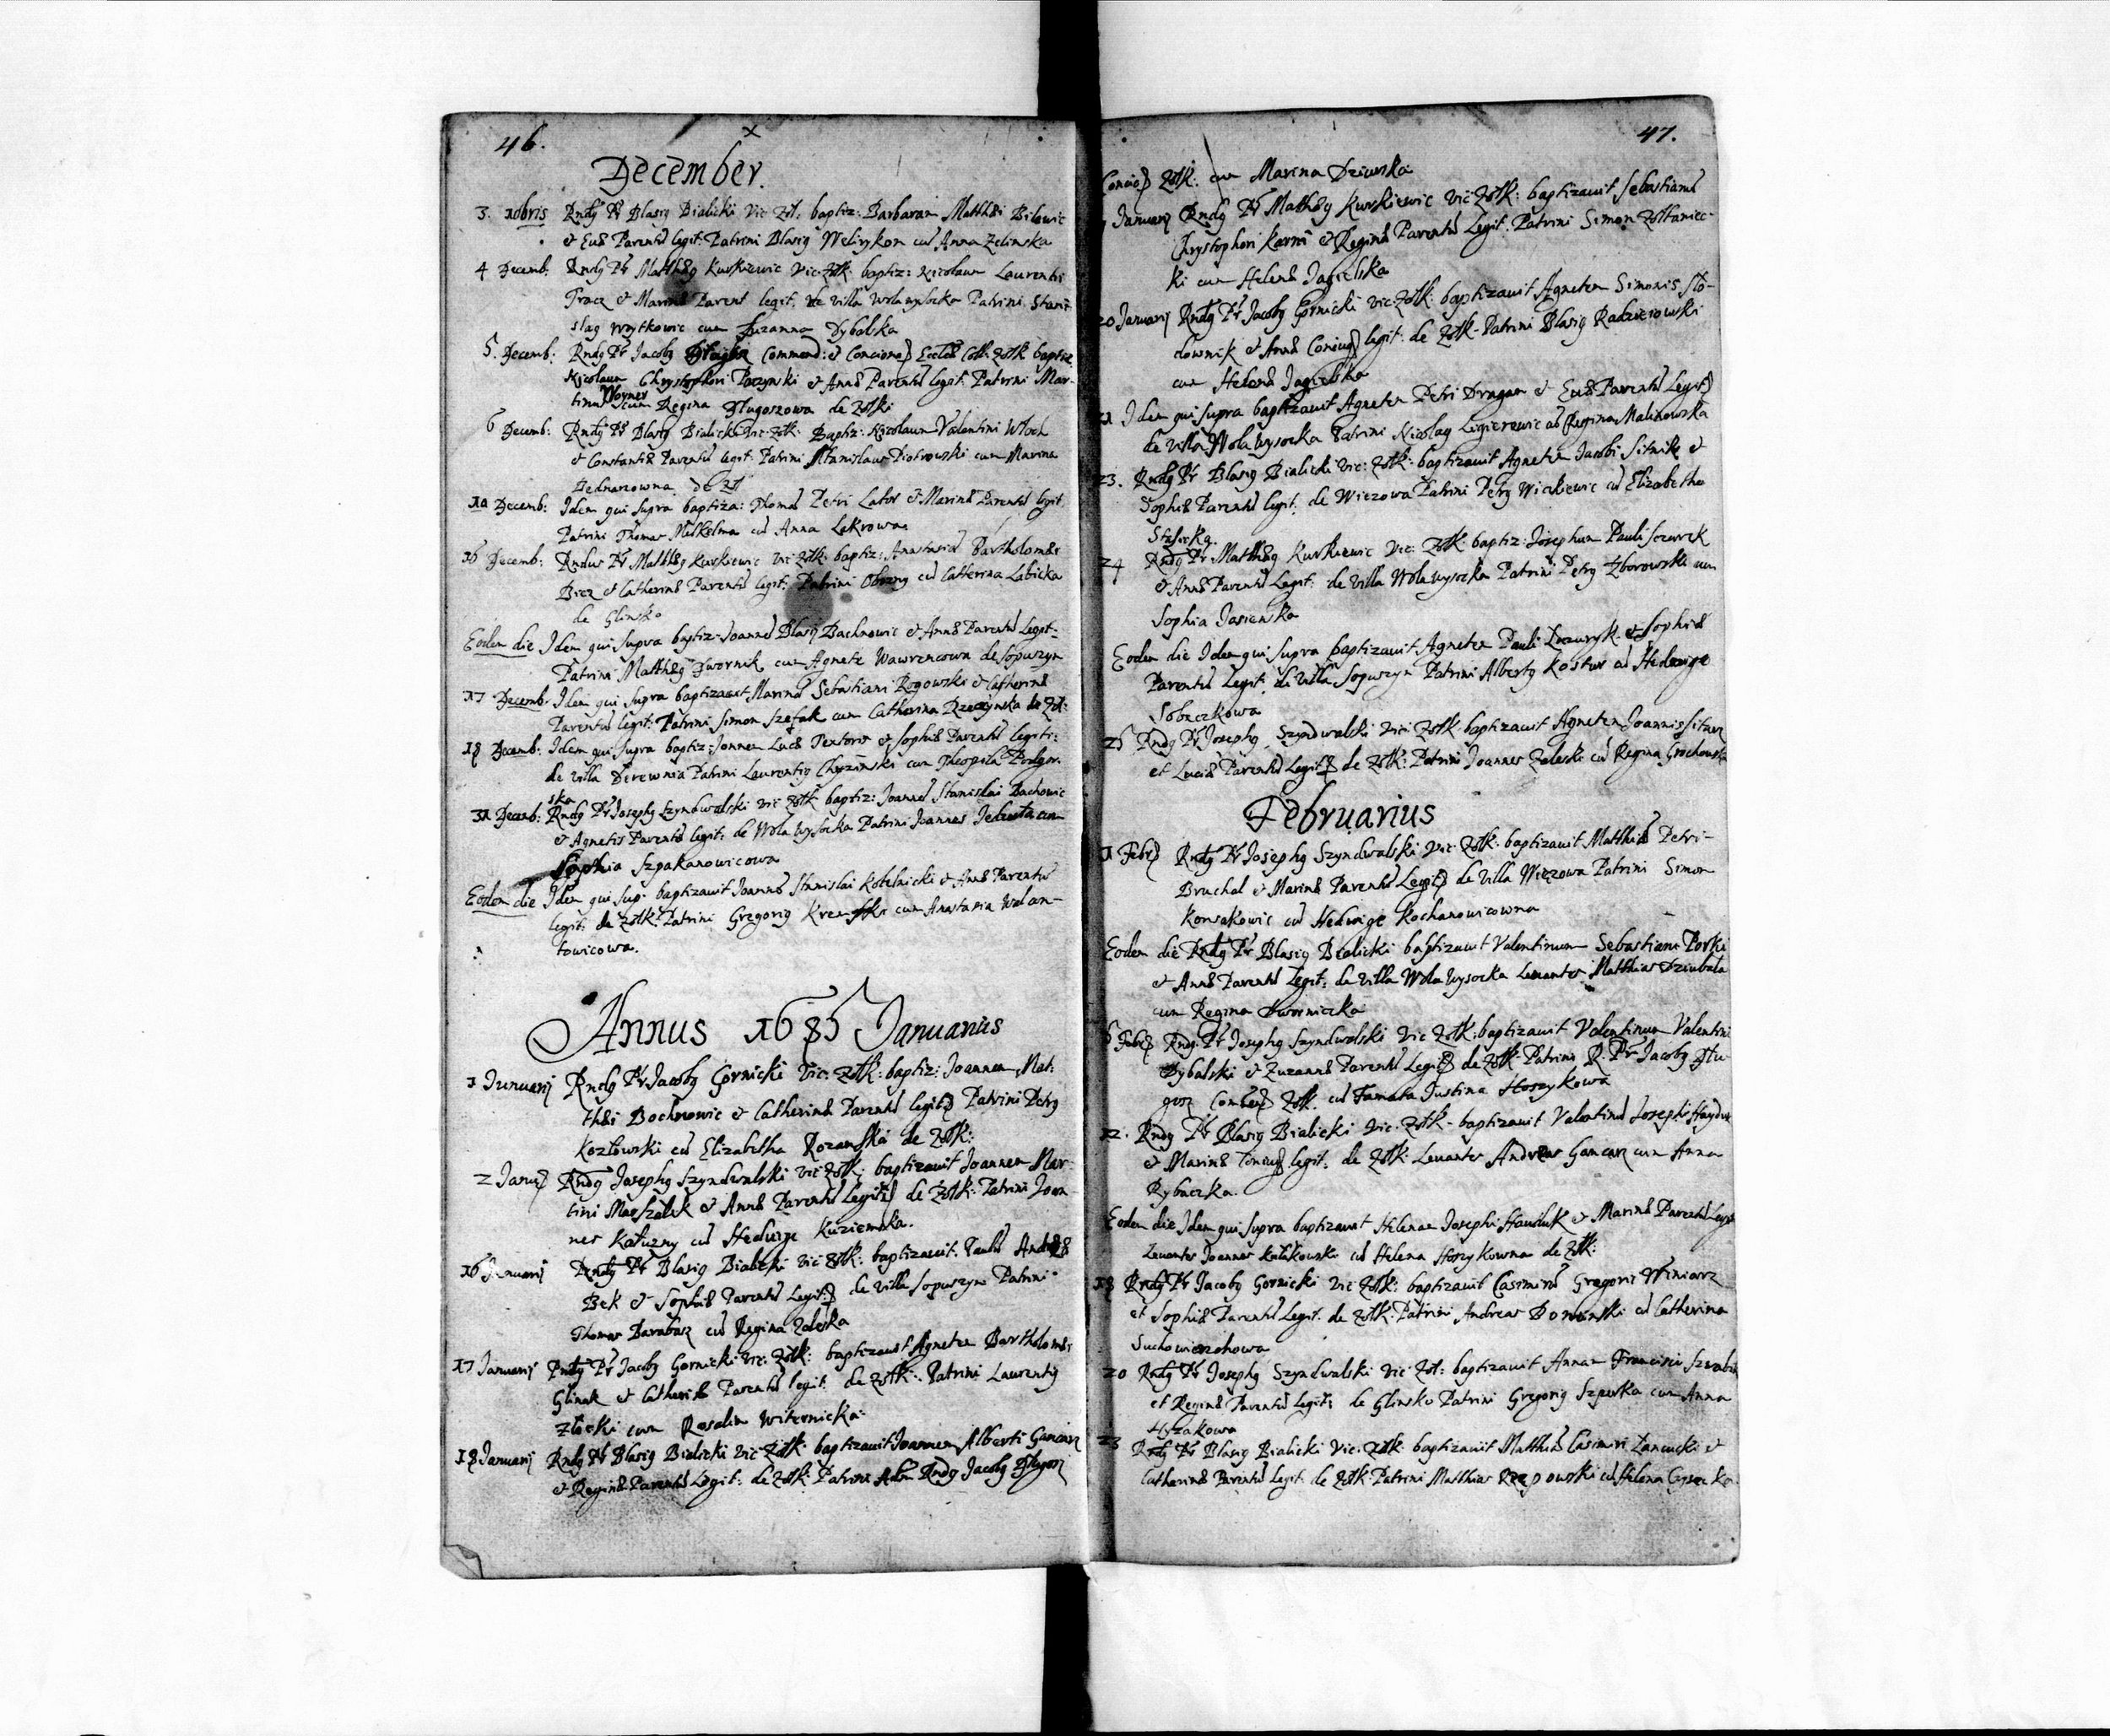 46.
x
December.
3. 10bris Rndg Pr Blasig Bialicki Vic Zol: baptiz: Barbaram Matthæi Bilewic
& Euæ Parentu legit: Patrini Blasig Welirykon cu Anna Zelinska
4 Decemb: Rndg Pr Matthæg Kurkiewic Vic: Zolk: baptiz: Nicolaum Laurentii
Tracz & Marinæ Parent legit: de villa Wola wysocka Patrini Stani-
slag Woytkowic cum Zuzanna Dybalska
5. Decemb: Rndg Pr Jacobg Commend: & Conciona Eccles Coll: Zolk baptiz
Nicolaum Chrystophori Paczynski & Annæ Parentu legit: Patrini Mar-
tinu Woyner cum Regina Długoszowa de Zolki
6 Decemb: Rndg Pr Blasig Bialicki Vic: Zolk: Baptiz: Nicolaum Valentini Włoch
& Constantiæ Parentu legit: Patrini Stanislaus Piotrowski cum Marina
Bednarzowna de Zol
10 Decemb: Idem qui supra baptiza: Thoma Petri Lator & Marinæ Parentu legit
Patrini Thomas Meskelma cu Anna Lakrowa
16 Decemb: Rndus Pr Matthæg Kurkiewic Vic Zolk: baptiz: Anastasia Bartholomæi
Bicz & Catherinæ Parentu legit: Patrini Obrazny cu Catterina Labicka
de Glinsko
Eodem die Idem qui supra baptiz: Joanne Blasij Bachnowic & Annæ Parentu Legit:
Patrini Matthæg Dwornik cum Agnete Wawrencowa de Sopuszyn
17 Decemb: Idem qui supra baptizauit Marina Sebastiani Rogowski & Catherinæ
Parentu legit: Patrini Simon Szefak cum Catherina Rzeczynska de Zol:
18 Decemb: Idem qui supra baptiz: Joannem Lucæ Textoris & Sophiæ Parentu legiti:
de villa Derewnia Patrini Laurentig Chyzinski cum Theophila Podgor-
ska
31 Decemb: Rndg Pr Josephg Szyndwalski vic Zolk baptiz: Joanne Stanislai Bachowic
& Agnetis Parentu legit: de Wola Wysocka Patrini Joannes Jedruta cum
Sophia Szpakanowicowa
Eodem die Idem qui sup: baptizauit Joanne Stanislai Kobelnicki & Annæ Parentu
legit: de Zolk: Patrini Gregorig Kremski cum Anastasia Walan-
towicowa.
Annus 1685 Januarius
1 Januarij Rndg Pr Jacobg Gornicki Vic: Zolk: baptiz: Joannem Mat:
thæi Bochnowic & Catherinæ Parentu legit Patrini Petrg
Kozłowski cu Elizabetha Rozanska de Zolk:
2 Janu Rndg Josephg Szyndwalski vic Zolk: baptizauit Joannem Mar-
tini Marszalek & Annæ Parentu Legit de Zolk: Patrini Joan
nes Kałuzny cu Hedwige Kuziemska.
16 Januarij Rndg Pr Blasig Bialicki vic Zolk: baptizauit Paulu Andreæ
Bek & Sophiæ Parentu Legit: de villa Sopuszyn Patrini
Thomas Barabasz cu Regina Zaleska
17 Januarij Rndg Pr Jacobg Gornicki Vic: Zolk: baptizauit Agnetem Bartholomæi
Glinak & Catherinæ Parentu legit: de Zolk: Patrini Laurentig
Złocki cum Rosalia Witernicka
18 Januarij Rndg Pr Blasig Bialicki vic Zolk: baptizauit Joannem Alberti Gancarz
& Reginæ Parentu Legit: de Zolk: Patrini Adm Rndg Jacobg Długosz
47.
Concio Zolk: cum Marina Dziurska
Januarij Rndg Pr Matthæg Kurkiewic Vic Zolk: baptizauit Sebastianu
Chrystophori Karni & Reginæ Parentu Legit: Patrini Simon Zołtaniec-
ki cum Helena Jagielska
20 Januarij Rndg Pr Jacobg Gornicki vic: Zolk: baptizauit Agnetem Simonis Sło-
downik & Annæ Coniug legit: de Zolk: Patrini Blasig Radzieiowski
cum Helena Jagielska
21 Idem qui supra baptizauit Agnetem Petri Dragan & Euæ Parentu Legit
de villa Wola Wysocka Patrini Nicolag Ligierewic cu Regina Malinowska
23. Rndg Pr Blasig Bialicki vic: Zolk: baptizauit Agnetem Jacobi Sitnik &
Sophiæ Parentu legit: de Wiezowa Patrini Petrg Wickiewic cu Elizabetha
24 Rndg Pr Matthæg Kurkiewic Vic: Zolk: baptiz: Josephum Pauli Sczurek
& Annæ Parentu Legit: de Villa Wola Wysocka Patrini Petrg Zborowski cum
Sophia Jasienska
Eodem die Idem qui supra baptizauit Agnetem Pauli & Sophiæ
Parentu Legit: de villa Sopuszyn Patrini Albertg Kostur cu Hedwige
Sobeczkowa
25 Rndg Pr Josephg Szyndwalski vic: Zolk baptizauit Agnetem Joannis Sitarz
et Luciæ Parentu Legit de Zolk: Patrini Joannes Zaleski cu Regina Grochowska
Februarius
1 Febr Rndg Pr Josephg Szyndwalski Vic: Zolk: baptizauit Matthia Petri-
Bruchal & Marinæ Parentu Legit de Villa Wiezowa Patrini Simon
Konsakowic cu Hedwige Kochanowicowna
Eodem die Rndg Pr Blasig Bialicki baptizauit Valentinum Sebastiani Porki
& Annæ Parentu Legit: de villa Wola Wysocka Leuantes Matthias Dziubała
cum Regina Dworniczka
6 Febr Rndg Pr Josephg Szyndwalski Vic Zolk: baptizauit Valentinum Valentini
Dybalski & Zuzannæ Parentu Legit de Zolk Patrini R. Pr Jacobg Dłu-
gosz Zolk: cu Famata Justina Hoszykowa
12. Rndg Pr Blasig Bialicki Vic: Zolk: baptizauit Valentinu Josephi Hayduk
& Marinæ Coniug legit: de Zolk: Leuantes Andreas Gancarz cum Anna
Rybaczka.
Eodem die Idem qui supra baptizauit Helenam Josephi Hawdluk & Marinæ Parentu Legit
Leuantes Joannes Kułakowski cu Helena Hoszykowna de Zolk:
18 Rndg Pr Jacobg Gornicki Vic Zolk: baptizauit Casimiru Gregorii Winiarz
et Sophiæ Parentu Legit: de Zolk: Patrini Andreas Bonenski cu Catherina
Suchowierzchowa
20 Rndg Pr Josephg Szyndwalski Vic Zol: baptizauit Annam Francisci
et Reginæ Parentu Legit: de Glinsko Patrini Gregorig Szpurka cum Anna
Hyzakowa
23 Rndg Pr Blasig Bialicki Vic: Zolk: baptizauit Matthia Casimiri Lancucki &
Catherinæ Parentu Legit: de Zolk Patrini Matthias Rzepowski cu Helena